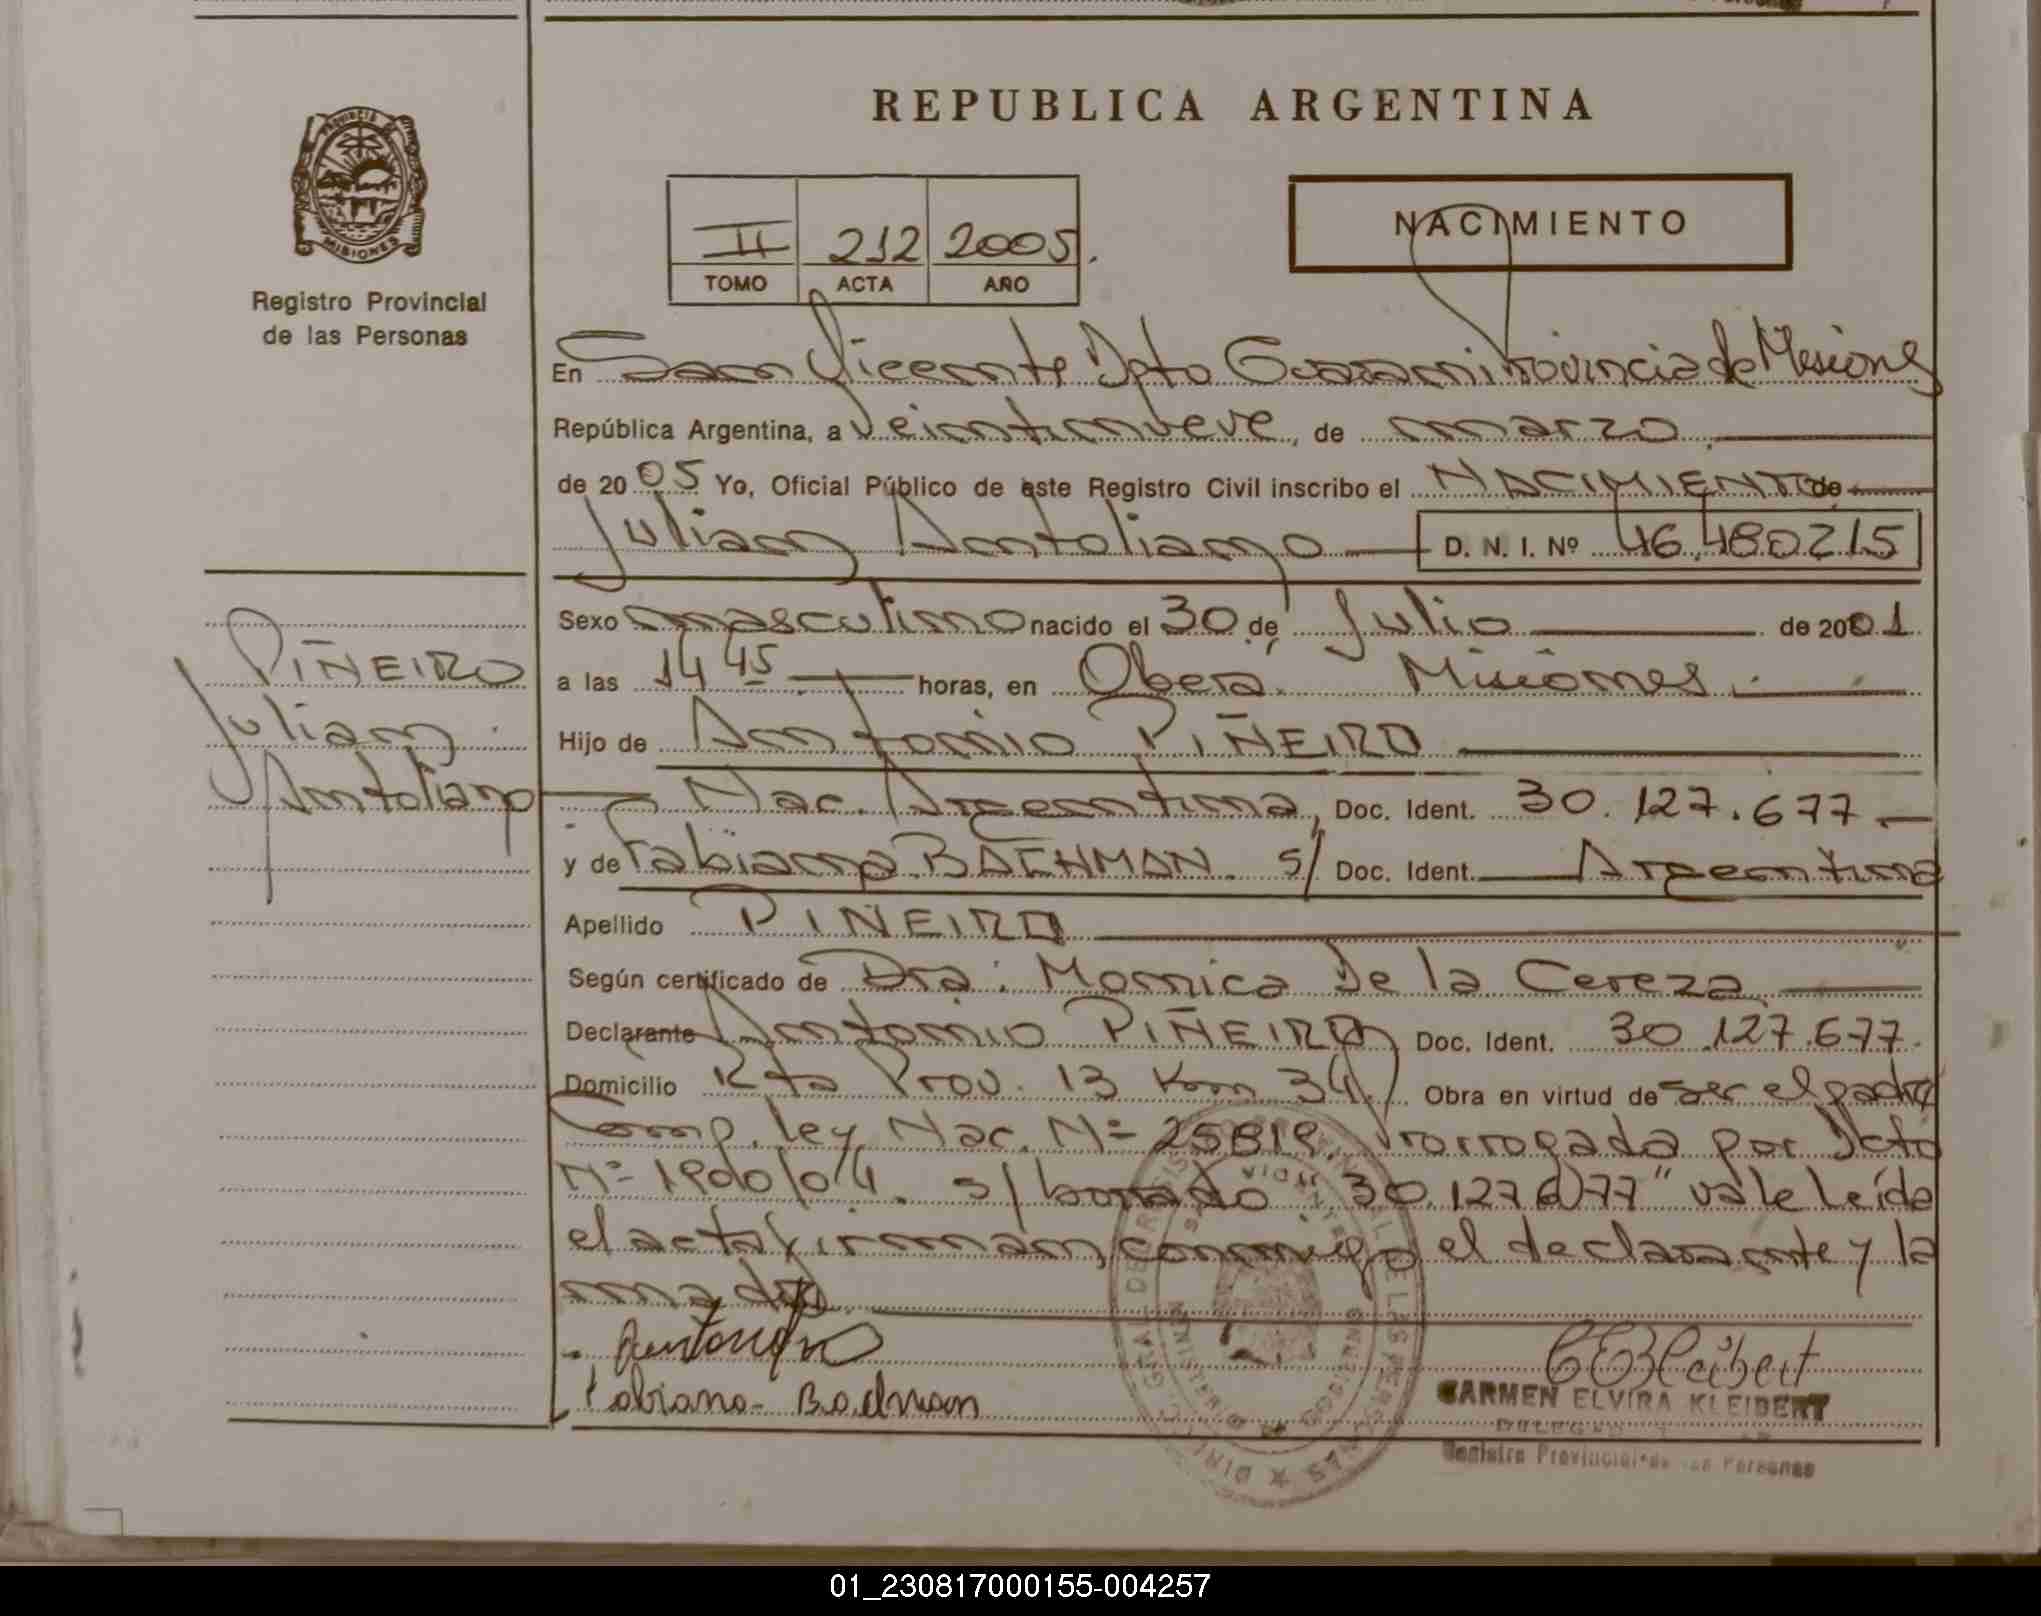 REPUBLICA ARGENTINA
PROVINCIA DE
MISIONES
Registro Provincial
de las Personas
II 212 2005.
TOMO ACTA AÑO
NACIMIENTO
En San Vicente Dpto Guarani Provincia de Misiones
República Argentina, a Veintinueve, de marzo
de 2005 Yo, Oficial Público de este Registro Civil inscribo el NACIMIENTO de
Julian Antoliano D. N. I. Nº 46.480215
Sexo masculino nacido el 30 de Julio de 2001
a las 14 45 horas, en Oberá Misiones.
Hijo de Antonio PIÑEIRO
Nac. Argentina, Doc. Ident. 30.127.677
y de Fabiana BACHMAN. s/ Doc. Ident. Argentina
Apellido PIÑEIRO
Según certificado de Dra: Monica De la Cereza
Declarante Antonio PIÑEIRO Doc. Ident. 30.127.677.
Domicilio Rta Prov. 13 Km 34. Obra en virtud de ser el padre
Comp. ley Nac. Nº 25819. Prorrogada por Dcto
Nº 1900/04. s/ borrado "30.127.677" vale leída
el acta firman conmigo el declarante y la
madre.
PIÑEIRO
Julian
Antoliano
Fabiana - Badman
CARMEN ELVIRA KLEIBERT
Registro Provincial de las Personas
01_230817000155-004257